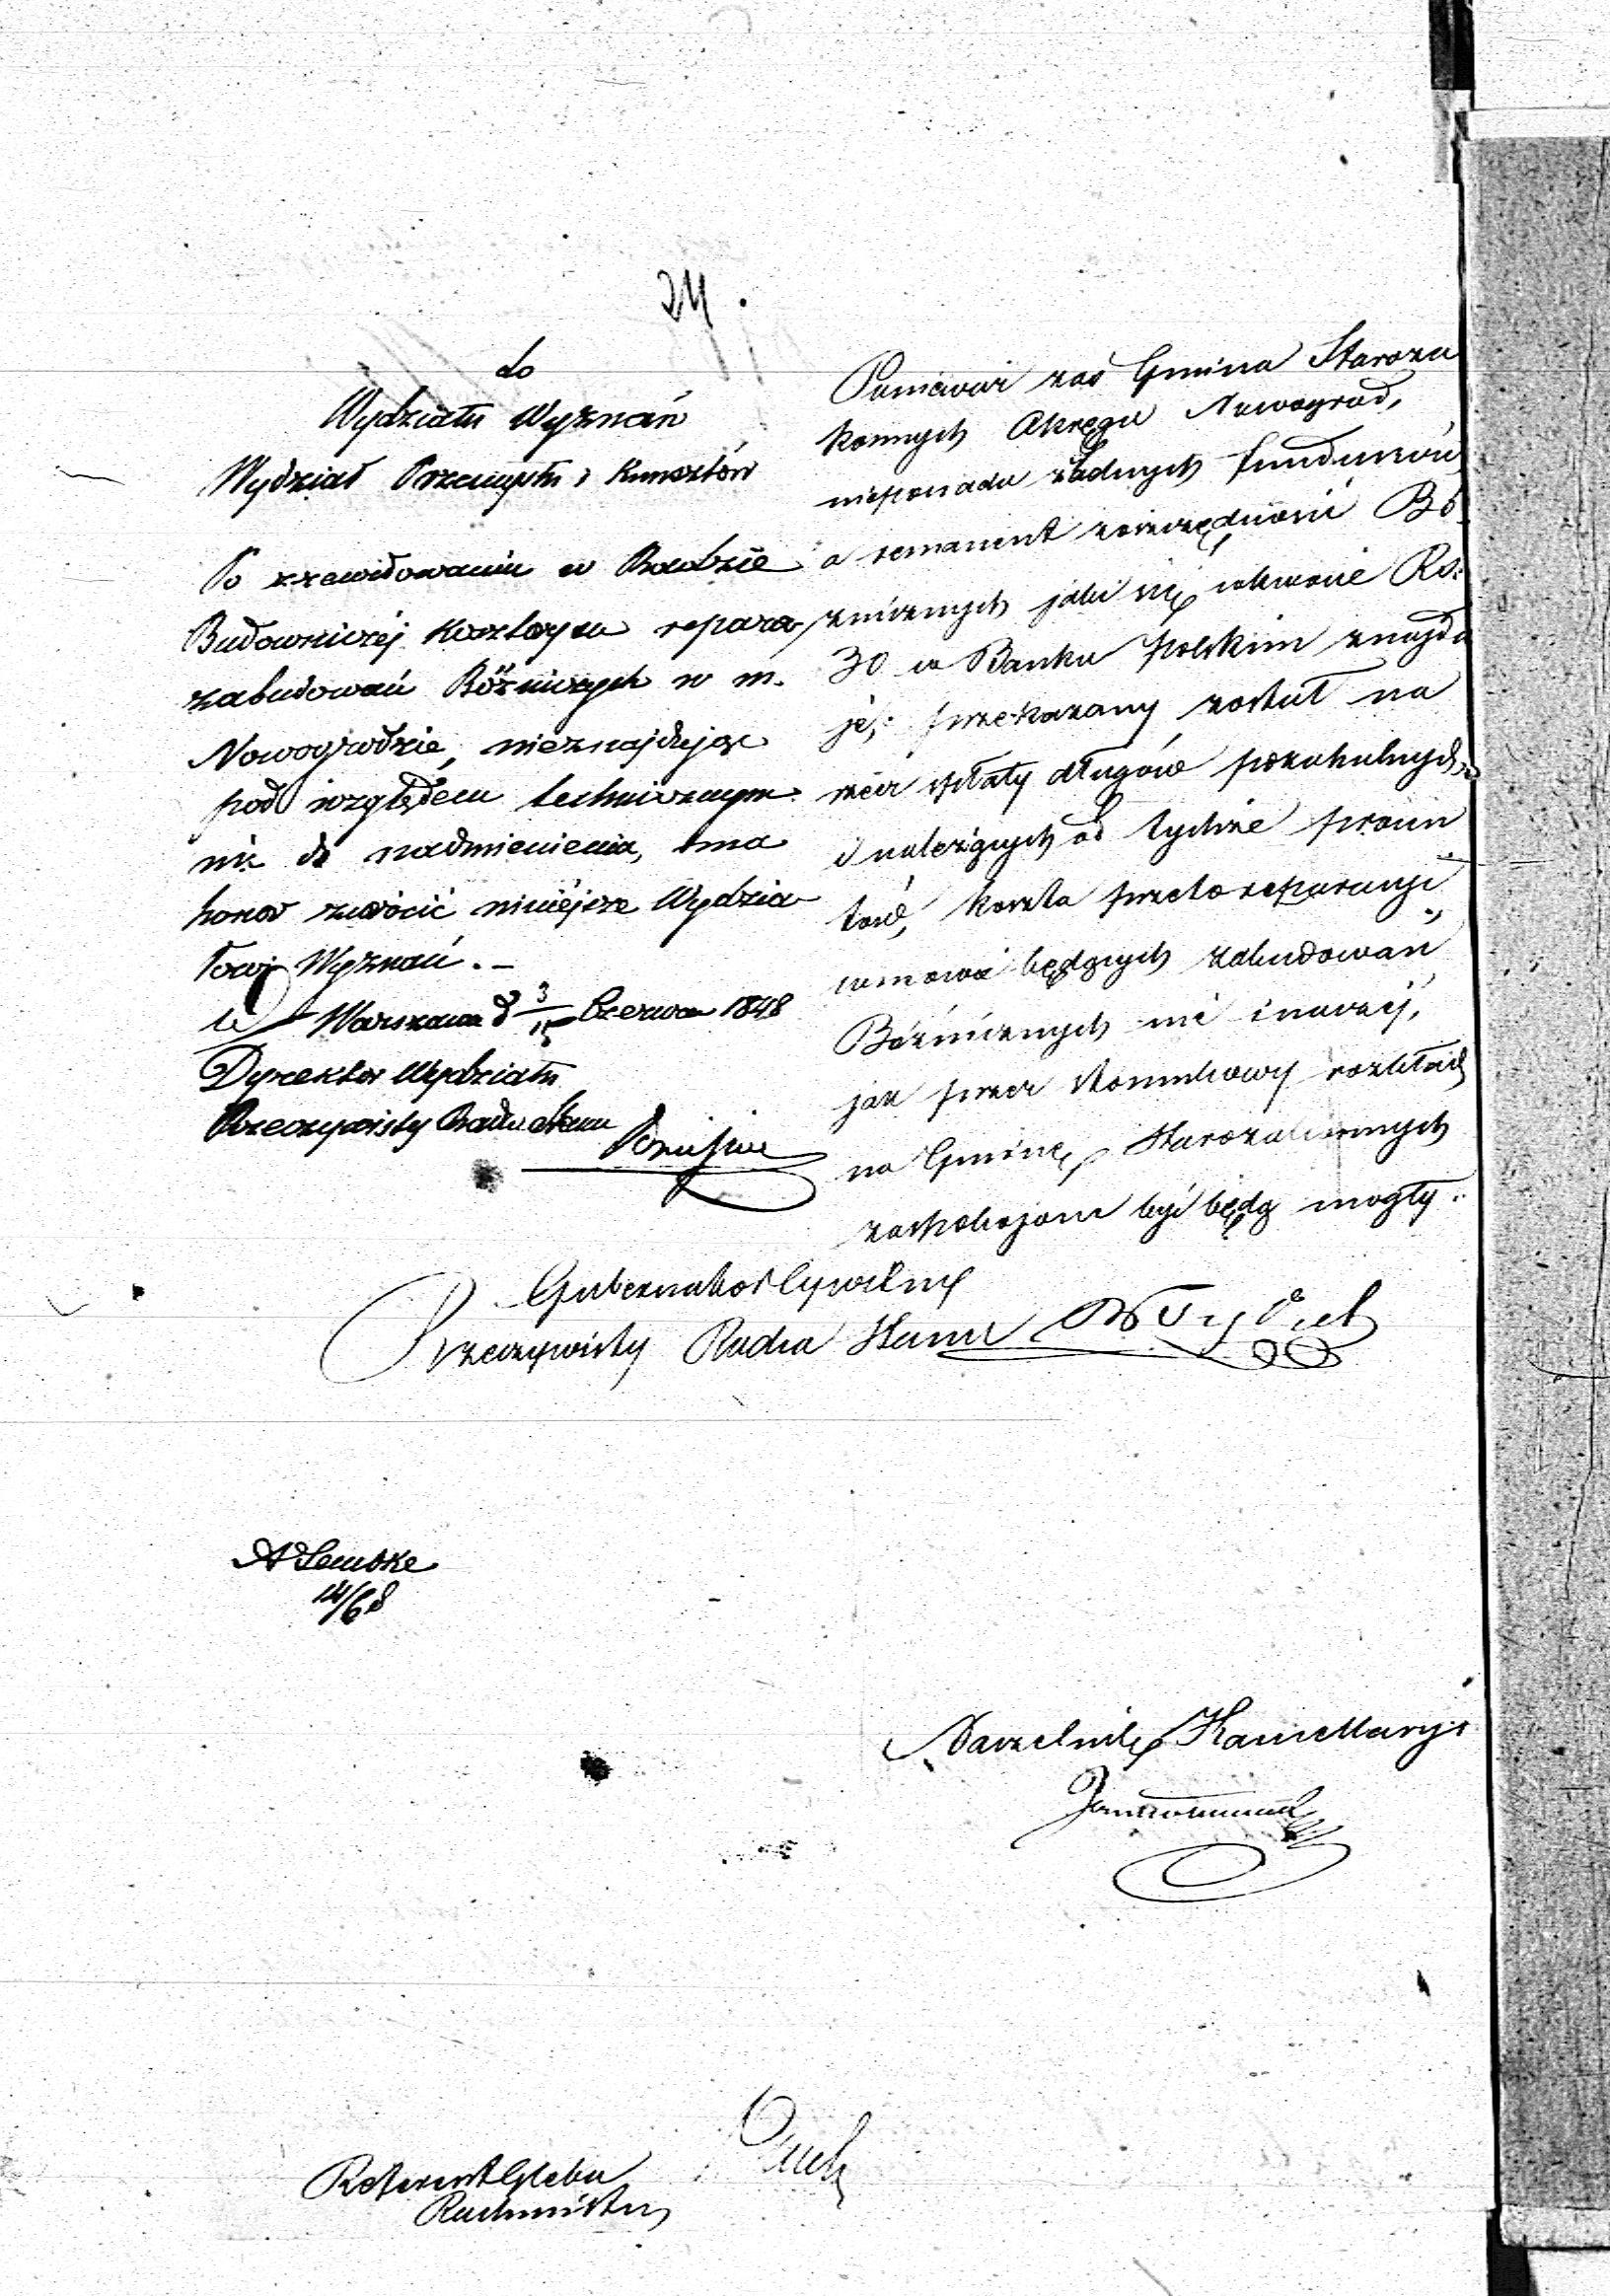 24.
do
Wydziału Wyznań
Wydział Przemysłu i Kunsztów
Po zrewidowaniu w Radzie
Budowniczéj kosztorysu repara
zabudowań Bóżniczych w m.
Nowogrodzie, nieznajdując
pod względem technicznym
nic do nadmienienia, ma
honor zwrócić niniéjsze Wydzia
łowi Wyznań.
w Warszawie d 3/15 Czerwca 1848
Dyrektor Wydziału
Rzeczywisty Radca Stanu
Ponieważ zaś Gmina Staroza
konnych Okręgu Nowogród,
nieposiada żadnych funduszów
a remanent z oszczędności Bó
żniczych jaki się w kwocie Rs.
30 w Banku Polskim znajdu
je, przekazany został na
rzecz spłaty długów pokahalnych
i należących od tychże procen
tów, koszta przeto reparacyi
w mowie będących zabudowań
Bóżniczych nie inaczéj,
jak przez składkowy rozkład
na Gminę Starozakonnych
zaspokojone być będą mogły.
Gubernator Cywilny
Rzeczywisty Radca Stanu
A Lembke
14/6 8
Naczelnik Kancellaryi
Referent Gleba
Rachmistrz